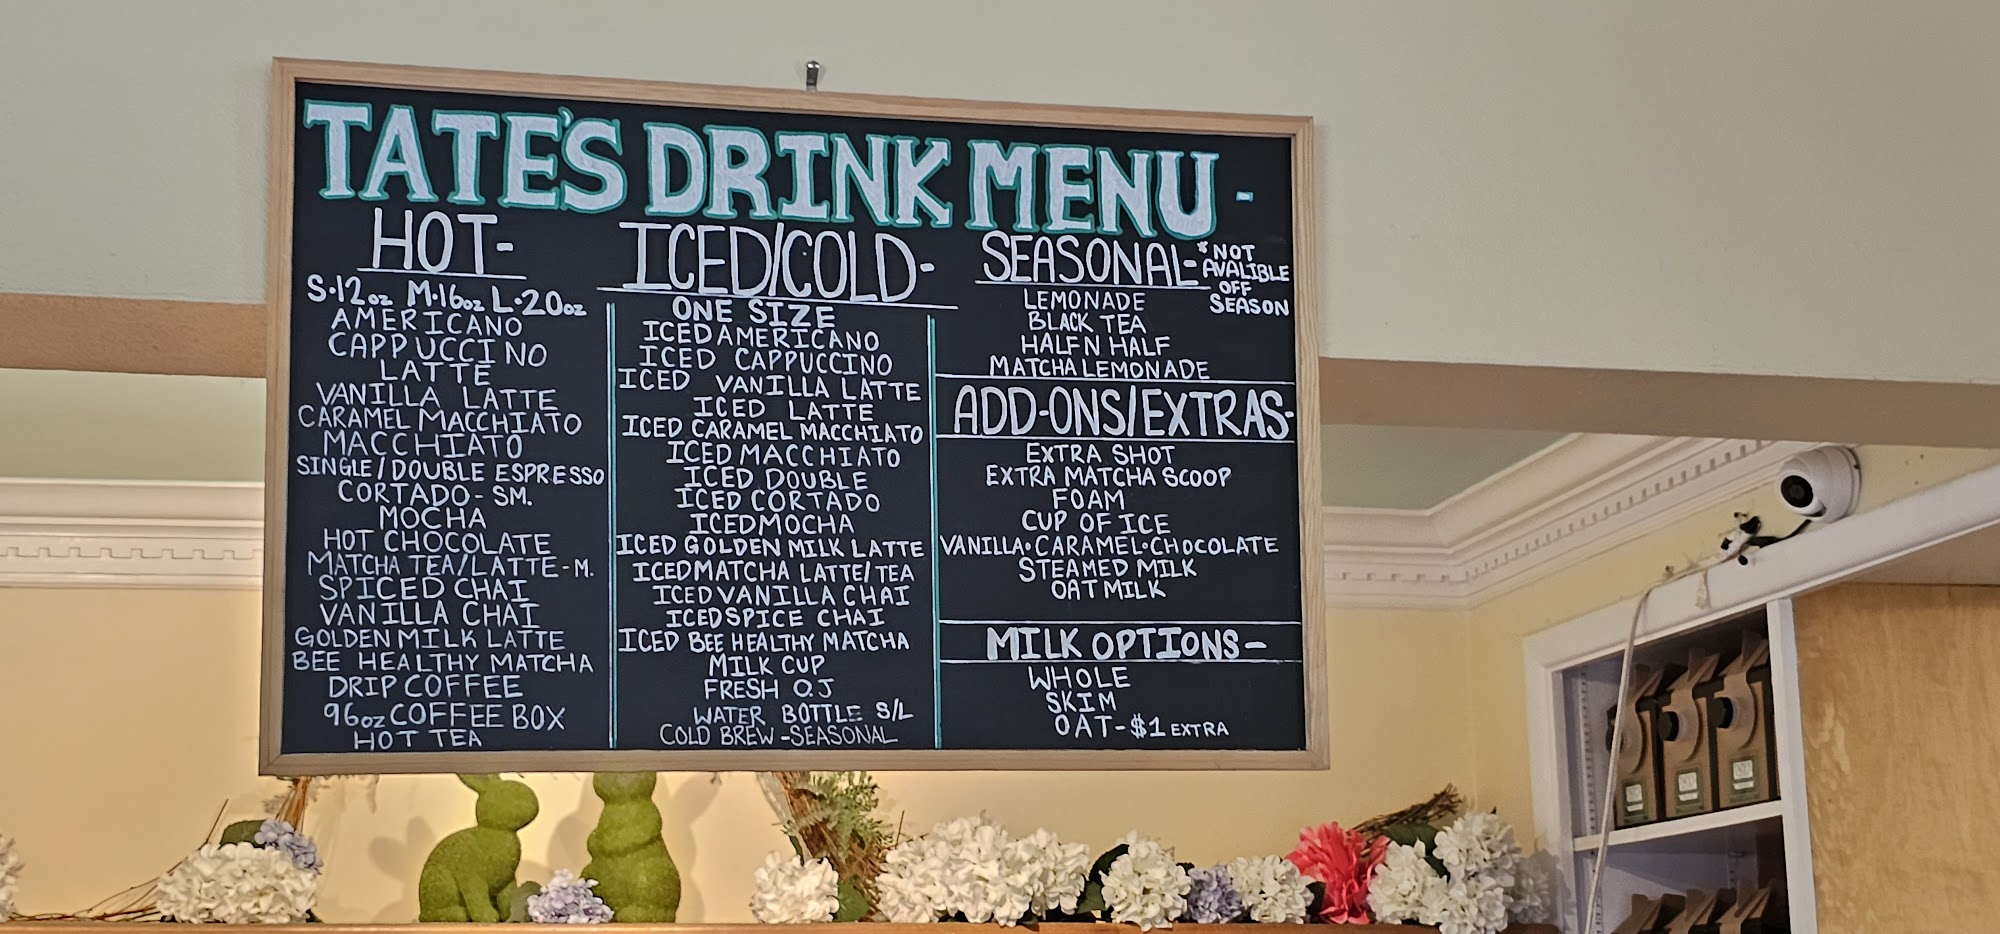 TATE'S DRINK MENU -
HOT-
S·12oz M·16oz L·20oz
AMERICANO
CAPPUCCINO
LATTE
VANILLA LATTE
CARAMEL MACCHIATO
MACCHIATO
SINGLE/DOUBLE ESPRESSO
CORTADO- SM.
MOCHA
HOT CHOCOLATE
MATCHA TEA/LATTE-M.
SPICED CHAI
VANILLA CHAI
GOLDEN MILK LATTE
BEE HEALTHY MATCHA
DRIP COFFEE
96oz COFFEE BOX
HOT TEA
ICED/COLD-
ONE SIZE
ICED AMERICANO
ICED CAPPUCCINO
ICED VANILLA LATTE
ICED LATTE
ICED CARAMEL MACCHIATO
ICED MACCHIATO
ICED DOUBLE
ICED CORTADO
ICED MOCHA
ICED GOLDEN MILK LATTE
ICED MATCHA LATTE/TEA
ICED VANILLA CHAI
ICED SPICE CHAI
ICED BEE HEALTHY MATCHA
MILK CUP
FRESH OJ
WATER BOTTLE S/L
COLD BREW -SEASONAL
SEASONAL-
*NOT
AVALIBLE
OFF
SEASON
LEMONADE
BLACK TEA
HALF N HALF
MATCHA LEMONADE
ADD-ONS/EXTRAS-
EXTRA SHOT
EXTRA MATCHA SCOOP
FOAM
CUP OF ICE
VANILLA·CARAMEL·CHOCOLATE
STEAMED MILK
OAT MILK
MILK OPTIONS-
WHOLE
SKIM
OAT-$1 EXTRA